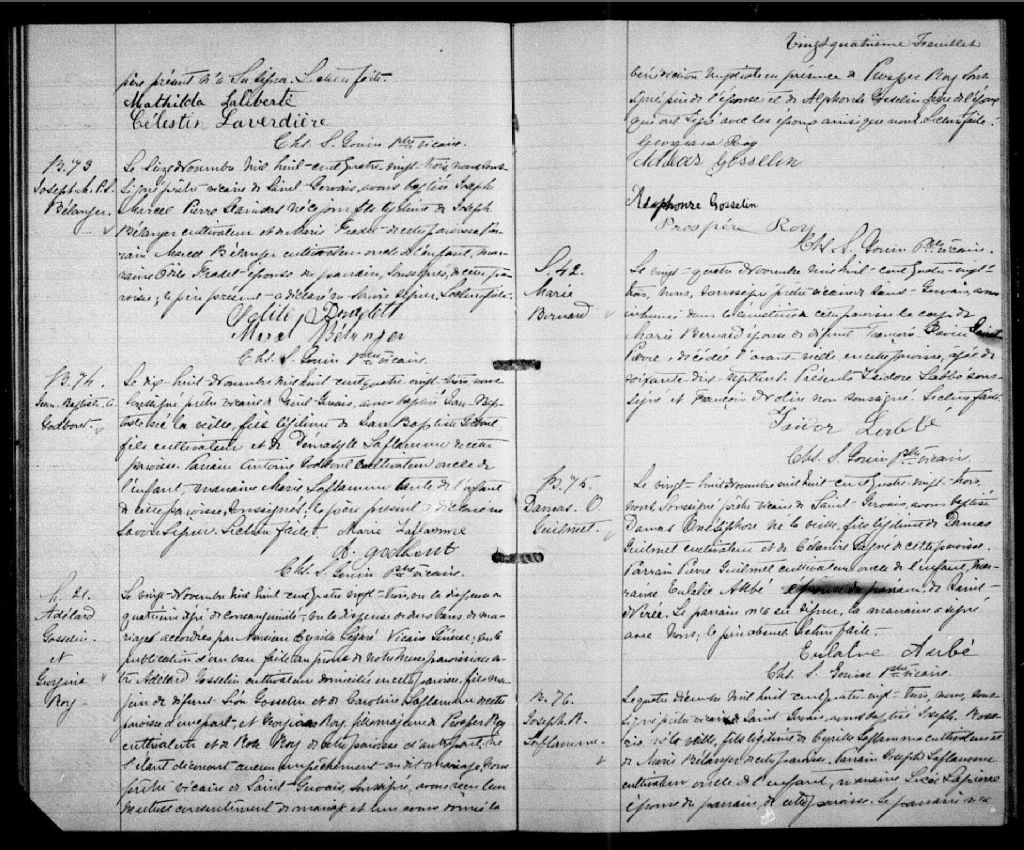 père présent n'a su signer. Lecture faite.
Mathilda Laliberté
Célestin Laverdière
Chs. S. Gouin Ptre vicaire.
B. 73
Joseph M. P. S.
Bélanger.
Le seize Novembre mil huit cent quatre-vingt trois, nous sous-
signé prêtre vicaire de Saint Gervais, avons baptisé Joseph
Marcel Pierre Stanislas né ce jour fils légitime de Joseph
Bélanger cultivateur et de Marie de cette paroisse. Par-
rain Marcel Bélanger cultivateur oncle de l'enfant, mar-
raine épouse du parrain, soussignés, de cette pa-
roisse; le père présent a déclaré ne savoir signer. Lecture faite.
Marcel Bélanger
Chs. S. Gouin Ptre vicaire.
B. 74.
Jean-Baptiste
Godbout.
Le dix-huit Novembre mil huit cent quatre vingt-trois, nous
soussigné prêtre vicaire de Saint Gervais, avons baptisé Jean-Bap-
tiste né la veille, fils légitime de Jean Baptiste Godbout
fils cultivateur et de Laflamme de cette
paroisse. Parrain Antoine Godbout cultivateur oncle de
l'enfant, marraine Marie Laflamme tante de l'enfant
de cette paroisse, soussignés, le père présent a déclaré ne
savoir signer. Lecture faite. Marie Laflamme
A. Godbout
Chs. S. Gouin Ptre vicaire.
M. 21.
Adélard
Gosselin
et
Georgina
Roy
Le vingt Novembre mil huit cent quatre vingt-trois, vu la dispense du
quatrième degré de consanguinité, vu la dispense de deux bans de ma-
riages accordées par Monsieur Cyrille Légaré Vicaire Général; vu la
publication d'un ban faite au prône de notre messe paroissiale en-
tre Adélard Gosselin cultivateur domicilié en cette paroisse, fils ma-
jeur de défunt Léon Gosselin et de Caroline Laflamme de cette
paroisse d'une part; et Georgina Roy, fille mineure de Prosper Roy
cultivateur et de Rose Roy de cette paroisse d'autre part; ne
s'étant découvert aucun empêchement au dit mariage, nous
prêtre vicaire de Saint-Gervais, soussigné, avons reçu leur
mutuel consentement de mariage et leur avons donné la
Vingt quatrième Feuillet
bénédiction nuptiale en présence de Prosper Roy sous-
signé père de l'épouse et de Alphonse Gosselin frère de l'époux
qui ont signé avec les époux ainsi que nous. Lecture faite.
Georgiana Roy
Gosselin
Alphonze Gosselin
Prospère Roy
Chs. S. Gouin Ptre vicaire.
S. 42.
Marie
Bernard
Le vingt-quatre Novembre mil huit-cent quatre-vingt
trois, nous, soussigné prêtre vicaire de Saint-Gervais, avons
inhumé dans le cimetière de cette paroisse le corps de
Marie Bernard épouse de défunt François
Pierre, décédée l'avant-veille en cette paroisse, âgée de
soixante dix-sept ans. Présents Isidore Labbé sous-
signé et François Nolin non soussigné. Lecture faite.
Isidor Labbé
Chs. S. Gouin Ptre vicaire.
B. 75.
Damas O.
Guilmet.
Le vingt-huit Novembre mil huit cent quatre vingt-trois,
nous soussigné prêtre vicaire de Saint-Gervais, avons baptisé
Damas Onésiphore né la veille, fils légitime de Damas
Guilmet cultivateur et de Célanire de cette paroisse.
Parrain Pierre Guilmet cultivateur oncle de l'enfant, mar-
raine Eulalie Aubé épouse du parrain, de Saint-
Nérée. Le parrain n'a su signer, la marraine a signé
avec nous; le père absent. Lecture faite.
Eulalie Aubé
Chs. S. Gouin Ptre vicaire.
B. 76.
Joseph R.
Laflamme.
Le quatre Décembre mil huit cent quatre vingt-trois, nous, sous-
signé prêtre vicaire de Saint Gervais, avons baptisé Joseph
né la veille, fils légitime de Cyrille Laflamme cultivateur et
de Marie Bélanger de cette paroisse. Parrain Joseph Laflamme
cultivateur oncle de l'enfant, marraine Lapierre
épouse du parrain, de cette paroisse. Le parrain n'a